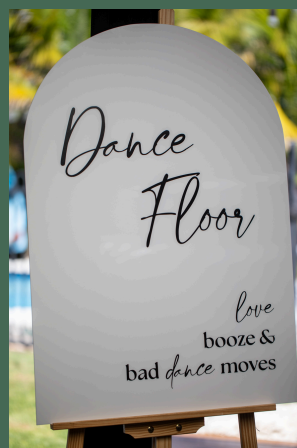 Dance
Floor
love
booze &
bad dance moves